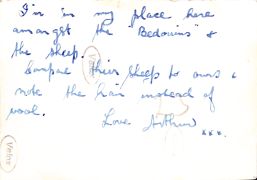 I'm in my place here
amongst the Bedouins &
the sheep.
Compare their sheep to ours &
note the hair instead of
wool.
Love Arthur
xxx.
Velox
Velox